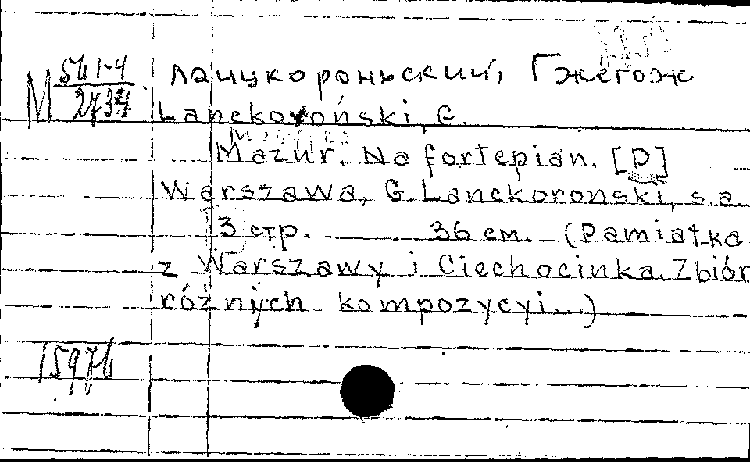 M
Ланцкороньский, Гжегож
Lanckoroński, G.
Mazur. Na fortepian. [P]
Warszawa, G. Lanckoronski, s.a.
3 стр. 36 см. (Pamiatka
z Warszawy i Ciechocinka. Zbiór
różnych kompozycyi...)